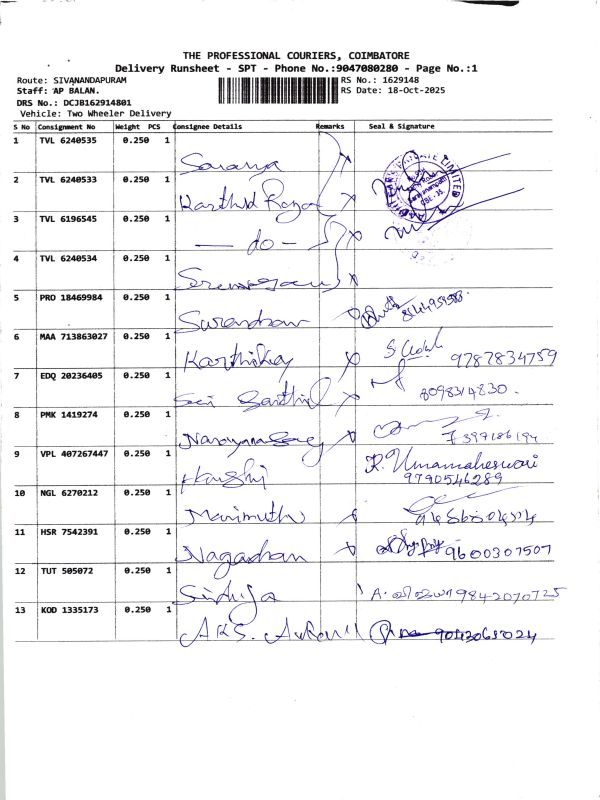 THE PROFESSIONAL COURIERS, COIMBATORE
Delivery Runsheet - SPT - Phone No.:9047080280 - Page No.:1
Route: SIVANANDAPURAM
RS No.: 1629148
Staff: AP BALAN.
RS Date: 18-Oct-2025
DRS No.: DCJB162914801
Vehicle: Two Wheeler Delivery
S No Consignment No Weight PCS Consignee Details Remarks Seal & Signature
1 TVL 6240535 0.250 1 Saranya
2 TVL 6240533 0.250 1 Karthick
3 TVL 6196545 0.250 1 - do -
4 TVL 6240534 0.250 1
5 PRO 18469984 0.250 1
6 MAA 713863027 0.250 1 Karthikey 9787834759
7 EDQ 20236405 0.250 1 Sai Senthil 8098314830.
8 PMK 1419274 0.250 1 7397186194
9 VPL 407267447 0.250 1 R. Umamaheswari
9790546289
10 NGL 6270212 0.250 1 Marimuthu
11 HSR 7542391 0.250 1 9600307507
12 TUT 505072 0.250 1 9842070725
13 KOD 1335173 0.250 1 AKS.